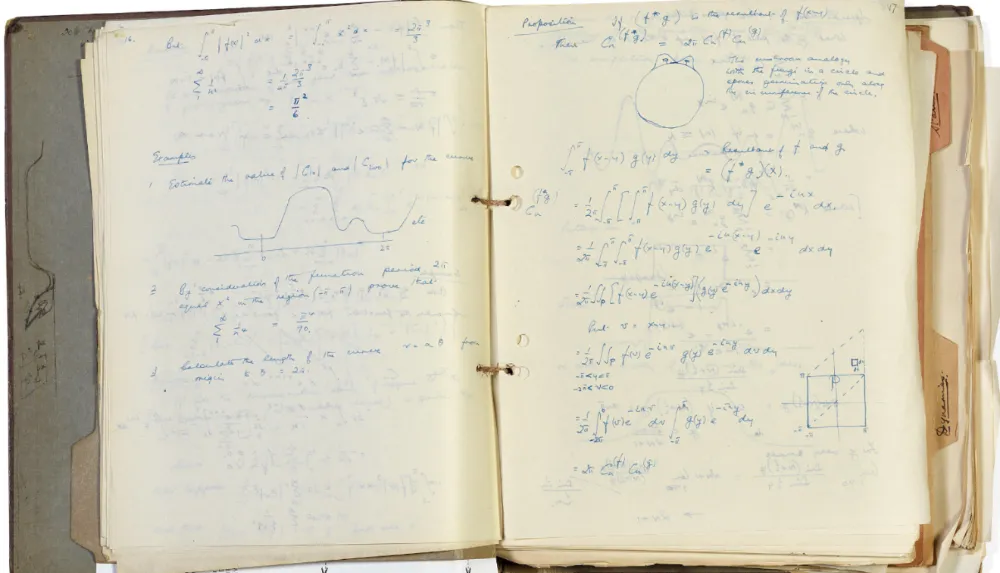 16.
But: ∫_{-π}^{π} |f(x)|² dx = ∫_{-π}^{π} x² dx = 2π³/3
∑_{1}^{∞} 1/n² =
= π²/6.
Examples
1 Estimate the value of |C₁₀| and |C₁₀₀| for the curve
etc
0 2π
2 By consideration of the function period 2π
equal x² in the region (-π, π) prove that
∑_{1}^{∞} 1/n⁴ = π⁴/90.
3 Calculate the length of the curve r = aθ from
origin to θ = 2π.
17
Proposition If (f*g) is the resultant of
then Cₙ^{(f*g)} = 2π Cₙ^{(f)} Cₙ^{(g)}
The analogy
with the fungi in a circle and
spores germinating only along
the circumference of the circle.
∫_{-π}^{π} f(x-y) g(y) dy → Resultant of f and g
= (f*g)(x).
Cₙ^{(f*g)} = 1/2π ∫_{-π}^{π} [∫_{-π}^{π} f(x-y) g(y) dy] e^{-inx} dx
= 1/2π ∫_{-π}^{π} ∫_{-π}^{π} f(x-y) g(y) e^{-in(x-y)} e^{-iny} dx dy
= 1/2π ∫∫ [f(x-y) e^{-in(x-y)}] (g(y) e^{-iny}) dx dy
Put v = x-y
= 1/2π ∫∫ f(v) e^{-inv} g(y) e^{-iny} dv dy
= 1/2π ∫ f(v) e^{-inv} dv ∫_{-π}^{π} g(y) e^{-iny} dy
= 2π Cₙ^{(f)} Cₙ^{(g)}
Dynamics.